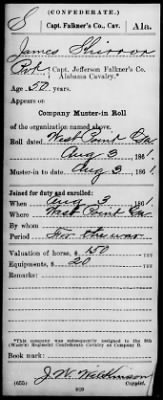 (CONFEDERATE.)
S Capt. Falkner's Co., Cav. Ala.
James
Pvt Capt. Jefferson Falkner's Co.
Alabama Cavalry.*
Age 50 years.
Appears on
Company Muster-in Roll
of the organization named above.
Roll dated West Point Ga
Aug 3 1861.
Muster-in to date Aug 3 1861.
Joined for duty and enrolled:
When Aug 3 1861.
Where West Point Ga
By whom
Period For the war
Valuation of horse, $ 150
Equipments, $ 20
Remarks:
*This company was subsequently assigned to the 8th
(Wade's) Regiment Confederate Cavalry as Company
Book mark:
J. W. Wilkinson
(655) Copyist.